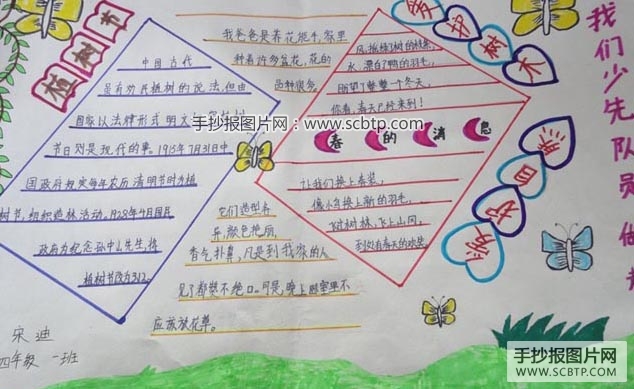 植树节
中国古代
虽有劝民植树的说法,但由
国家以法律形式 明文
节日则是现代的事。1915年7月31日中
国政府规定每年农历 清明节时为植
树节,组织造林活动。1928年4月国民
政府为纪念孙中山先生,将
植树节改为3.12。
我爸爸是养花能手,家里
种着许多盆花,花的
品种很多
它们造型各
异,颜色艳丽,
香气扑鼻,凡是到我家的人
见了都赞不绝口。可是,晚上卧室里不
应该放花草。
风,
水,漂白了鸭的羽毛,
盼望了整整一个冬天,
你看,春天已经来到!
春的消息
让我们换上春装,
像小鸟换上新的羽毛,
飞过树林,飞上山冈,
到处有春天的欢笑。
爱护树木
爱护自然
我们少先队员做
宋迪
四年级 一班
手抄报图片网:www.scbtp.com
手抄报图片网
WWW.SCBTP.COM